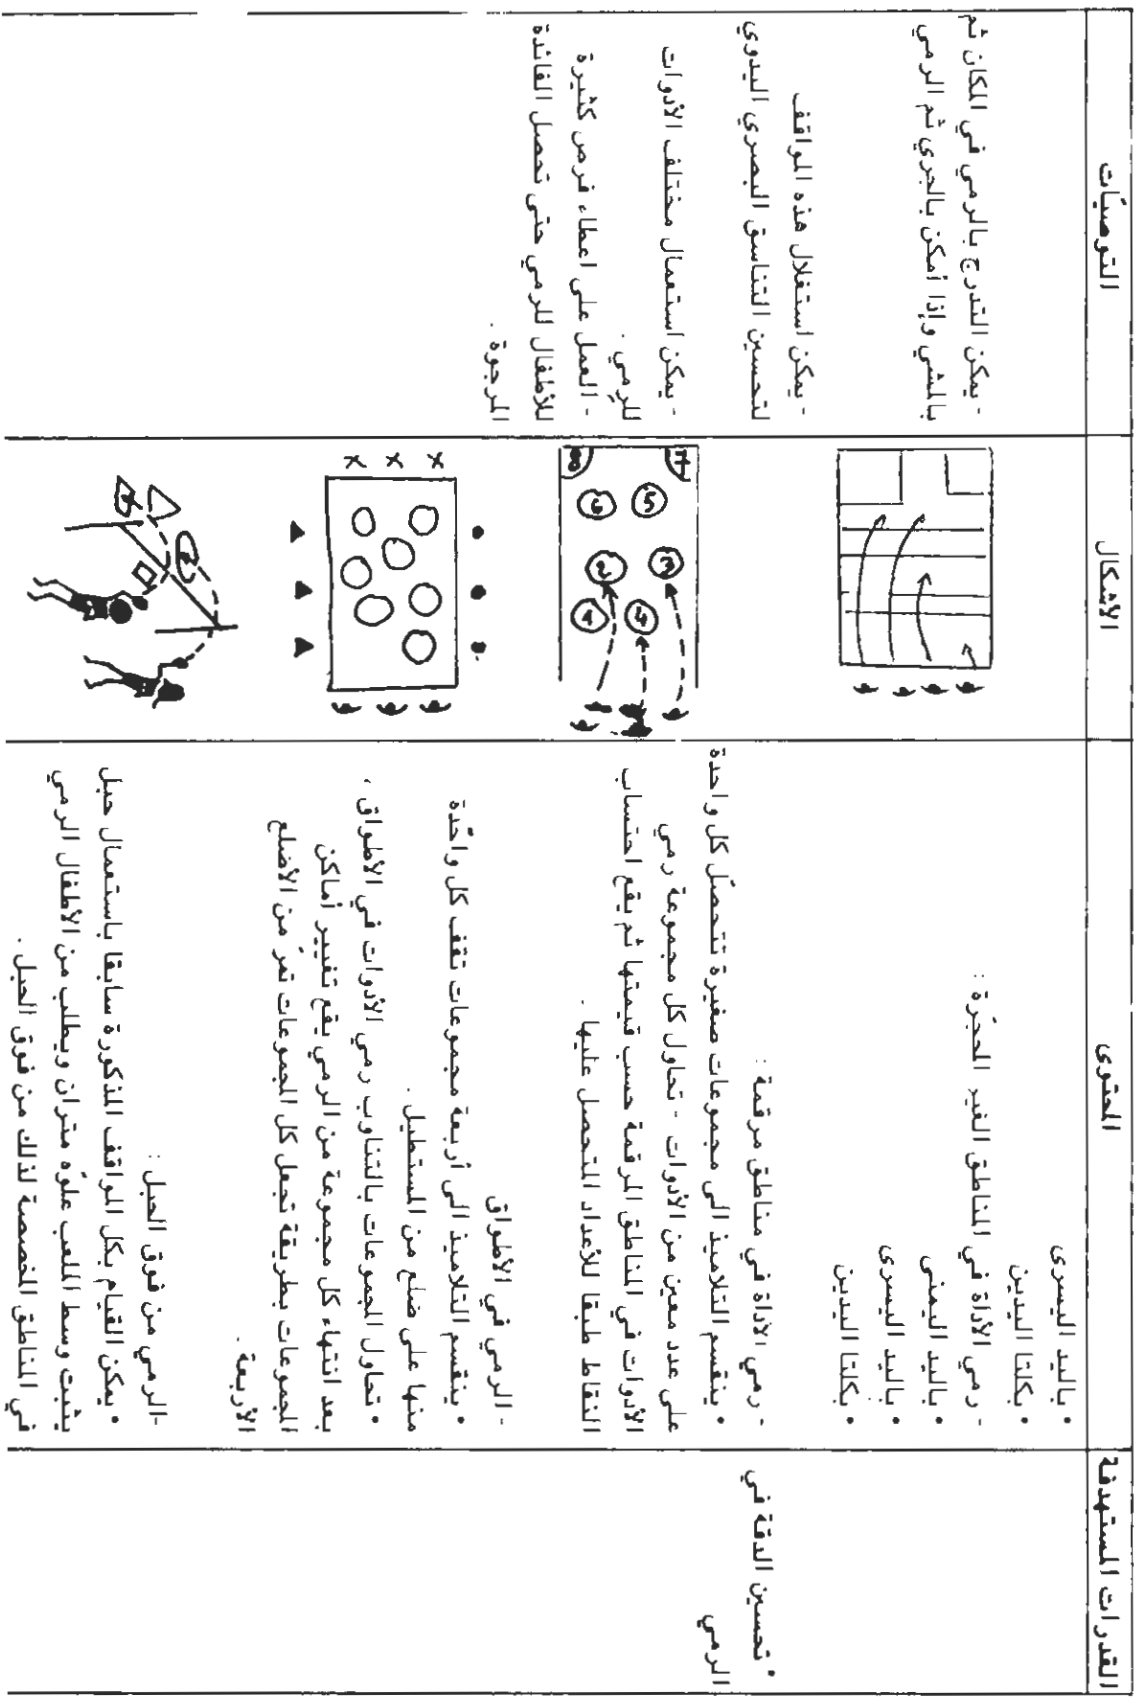 القدرات المستهدفة
المحتوى
الأشكال
التوصيّات
• تحسين الدقة في
الرمي
• باليد اليسرى
• بكلتا اليدين
- رمي الأداة في المناطق الغير المحجرّة :
• باليد اليمنى
• باليد اليسرى
• بكلتا اليدين
- رمي الأداة في مناطق مرقمة :
• ينقسم التلاميذ الى مجموعات صغيرة تتحصل كل واحدة
على عدد معين من الأدوات - تحاول كل مجموعة رمي
الأدوات في المناطق المرقمة حسب قيمتها ثم يقع احتساب
النقاط طبقا للأعداد المتحصل عليها .
- الرمي في الأطواق
• ينقسم التلاميذ الى أربعة مجموعات تقف كل واحدة
منها على ضلع من المستطيل .
• تحاول المجموعات بالتناوب رمي الأدوات في الأطواق ،
بعد انتهاء كل مجموعة من الرمي يقع تغيير أماكن
المجموعات بطريقة تجعل كل المجموعات تمرّ من الأضلع
الأربعة .
-الرمي من فوق الحبل :
• يمكن القيام بكل المواقف المذكورة سابقا باستعمال حبل
يثبت وسط الملعب علوّه متران ويطلب من الأطفال الرمي
في المناطق المخصصة لذلك من فوق الحبل .
8
6 5
2 3
1 4
x x x
- يمكن التدرج بالرمي في المكان ثم
بالمشي وإذا أمكن بالجري ثم الرمي
- يمكن استغلال هذه المواقف
لتحسين التناسق البصري اليدوي
- يمكن استعمال مختلف الأدوات
للرمي .
- العمل على اعطاء فرص كثيرة
للأطفال للرمي حتى تحصل الفائدة
المرجوة .